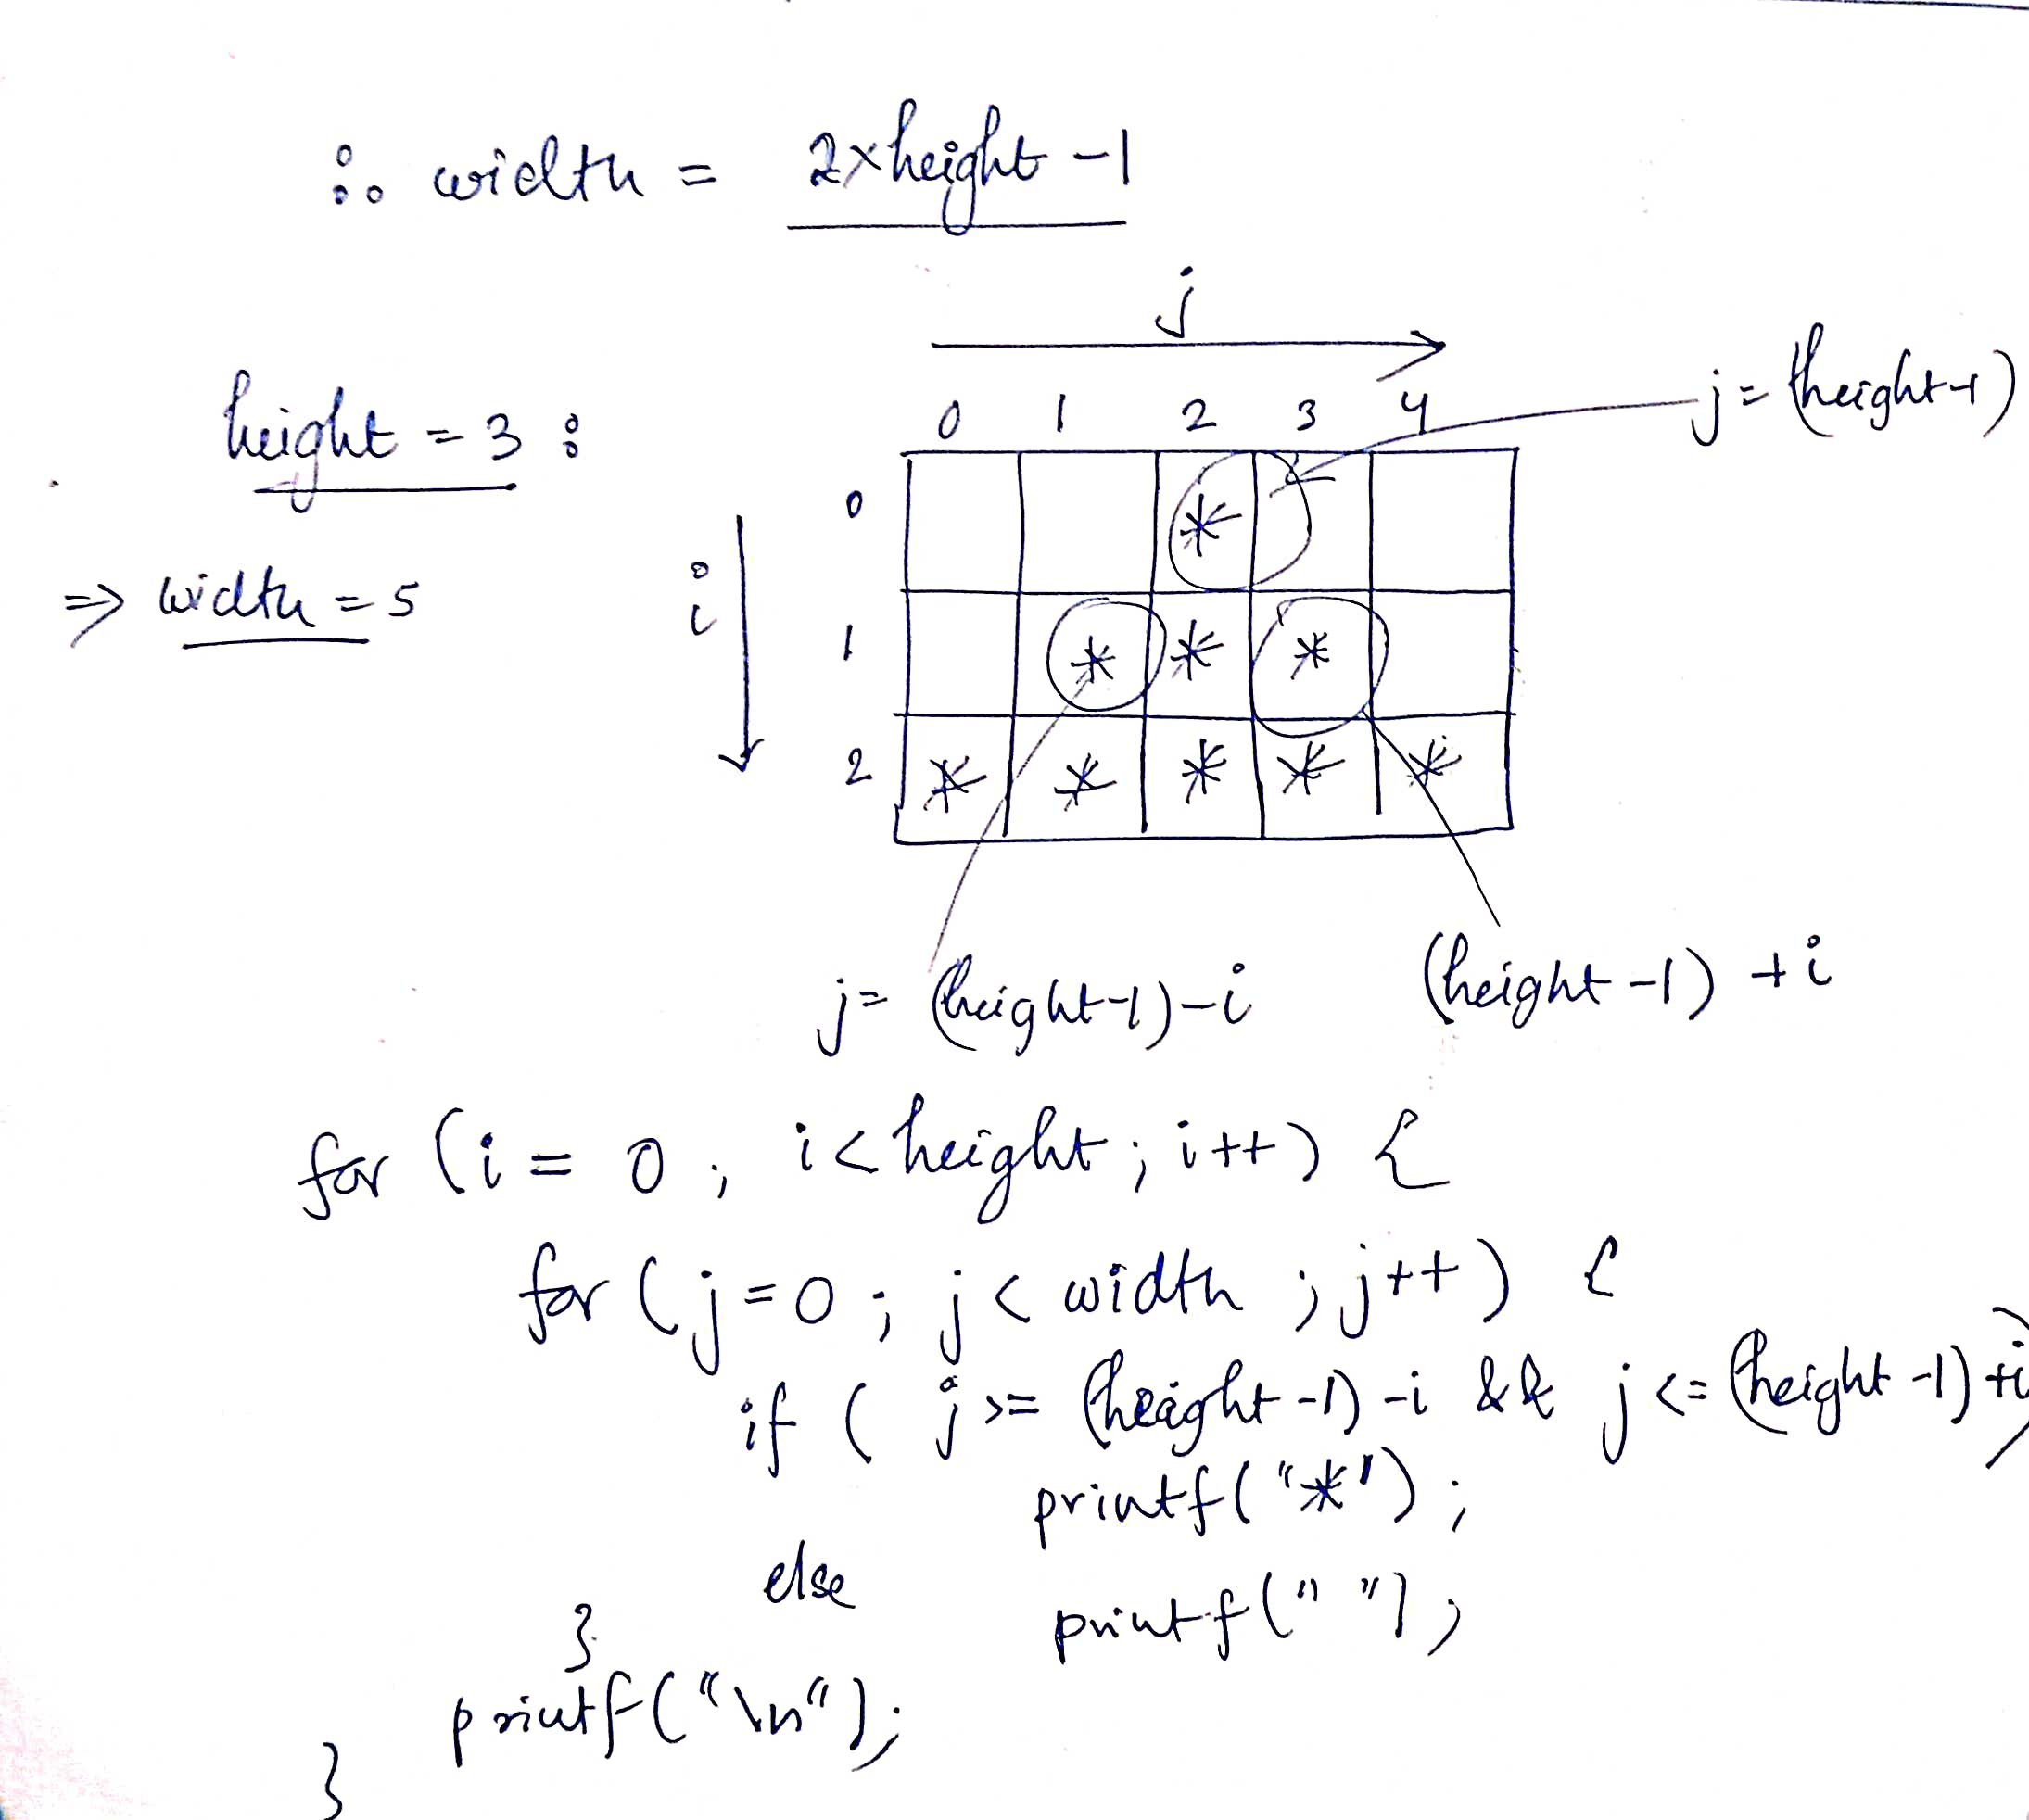 ∴ width = 2×height -1
j
height = 3 :
0 1 2 3 4
j = (height-1)
0 *
⇒ width = 5
i
1 * * *
2 * * * * *
j = (height-1)-i
(height-1) +i
for (i = 0 ; i < height ; i++) {
for (j=0 ; j < width ; j++) {
if ( j >= (height-1) -i && j <= (height-1)+i)
printf("*") ;
else
printf(" ") ;
}
printf("\n");
}